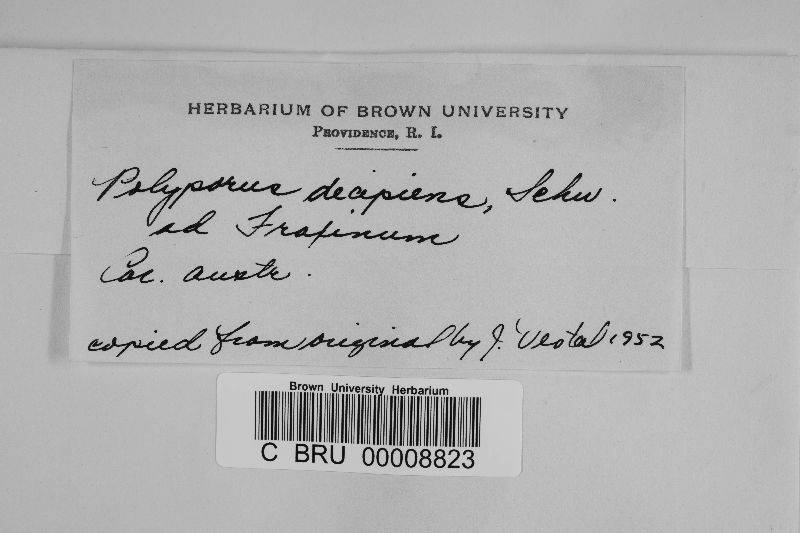 HERBARIUM OF BROWN UNIVERSITY
PROVIDENCE, R. I.
Polyporus decipiens, Schw.
ad Fraxinum
Car. austr.
copied from original by J. Vestal 1952
Brown University Herbarium
C BRU 00008823